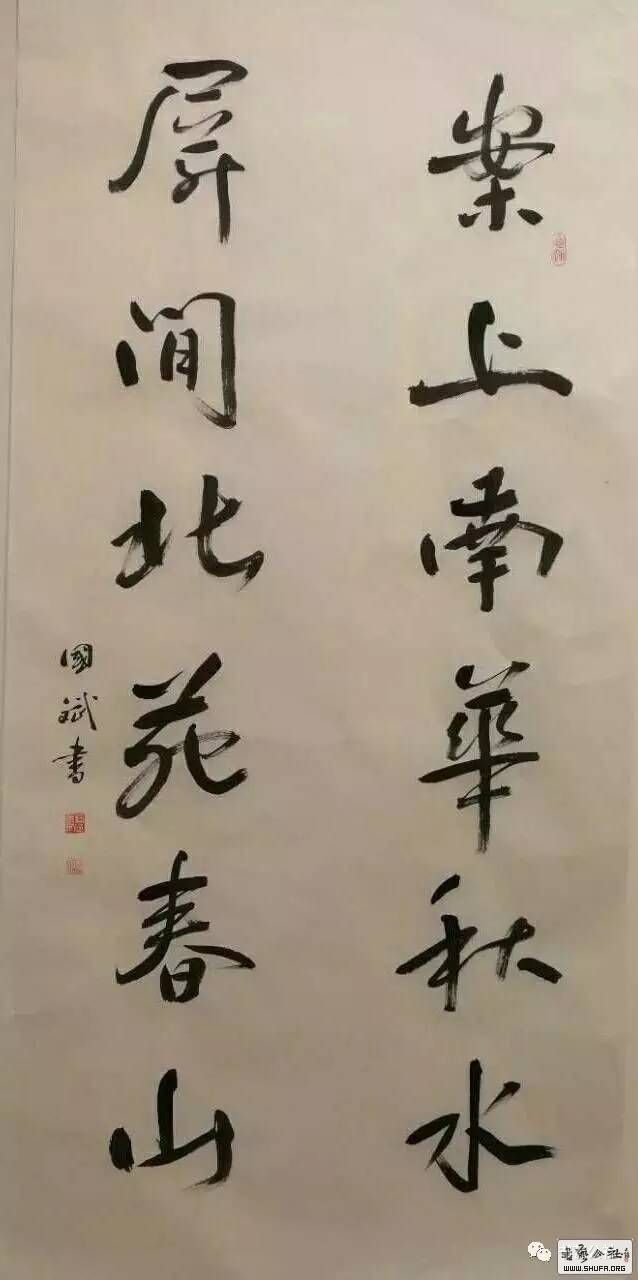 案上南華秋水
屏間北苑春山
國斌書
書藝公社
WWW.SHUFA.ORG